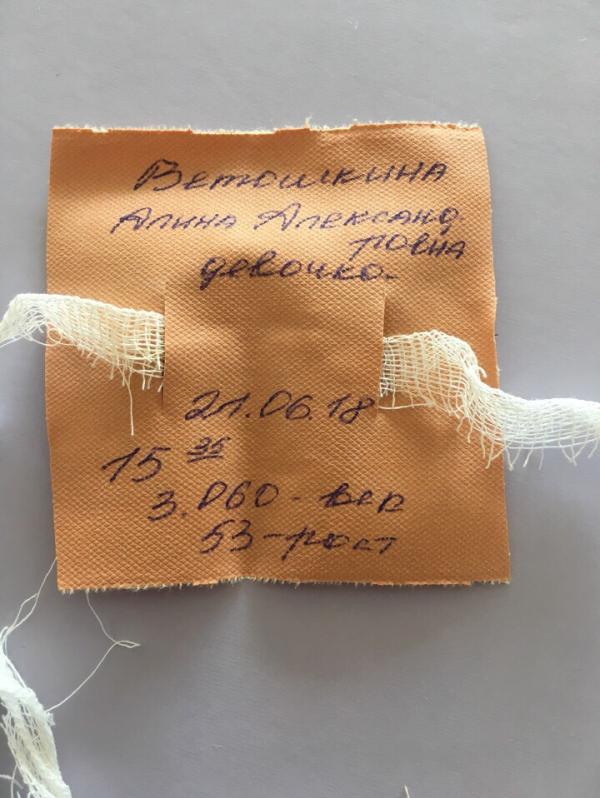 Ветошкина
Алина Александ
ровна
девочка
21.06.18
15 35
3.060 - вес
53 - рост